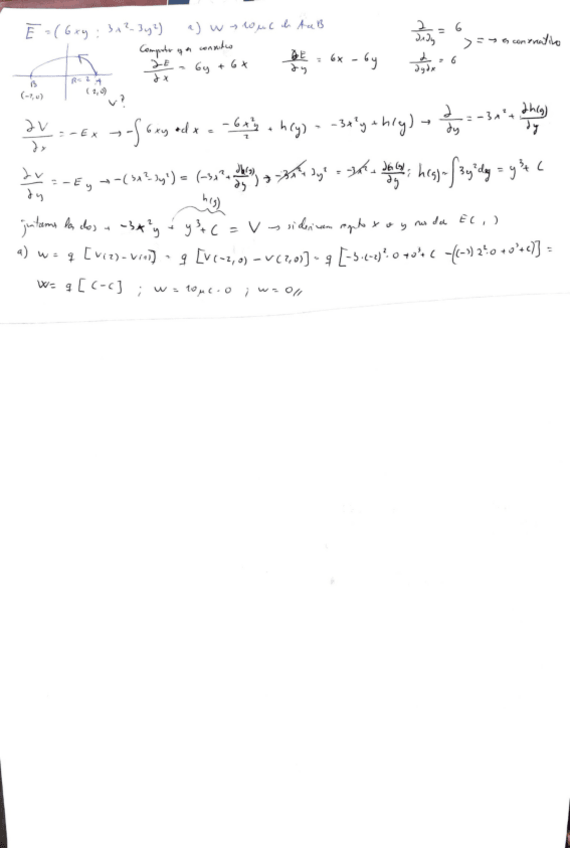 E = (6xy ; 3x²-3y²) a) W → 10μC de A a B
∂/∂x∂y = 6
Compruebo q es conservativo
∂E/∂x = 6y + 6x ∂E/∂y = 6x - 6y > = → es conservativo
∂/∂y∂x = 6
B A
(-2,0) R=2 (2,0)
V?
∂V/∂x = -Ex → -∫6xy·dx = -6x²y/2 + h(y) = -3x²y + h(y) → ∂/∂y = -3x² + ∂h(y)/∂y
∂V/∂y = -Ey → -(3x²-3y²) = (-3x² + ∂h(y)/∂y) → -3x² + 3y² = -3x² + ∂h(y)/∂y ; h(y) = ∫3y²dy = y³ + C
h(y)
juntamos los dos → -3x²y + y³ + C = V → si derivan respto x o y nos da E( , )
a) W = q [V(2) - V(1)] = q [V(-2,0) - V(2,0)] = q [-3·(-2)²·0 + 0³ + C - ((-3)2²·0 + 0³ + C)] =
W = q [C - C] ; W = 10μC·0 ; W = 0//